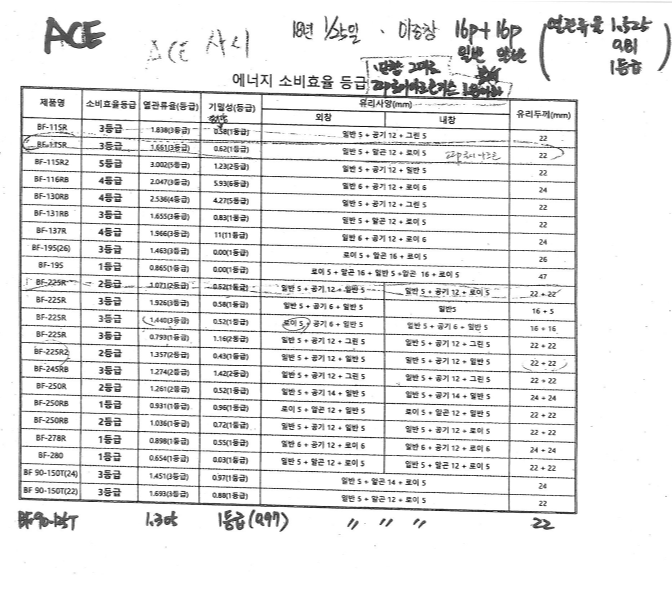 ACE
ACE 샤시
18년 1/25일. 이중창 16p+16p
일반 맑은
열관류율 1.525
0.81
1등급
에너지 소비효율 등급
제품명 소비효율등급 열관류율(등급) 기밀성(등급) 유리사양(mm) 유리두께(mm)
외창 내창
BF-115R 3등급 1.838(3등급) 0.58(1등급) 일반 5 + 공기 12 + 그린 5 22
BF-115R 3등급 1.661(3등급) 0.62(1등급) 일반 5 + 알곤 12 + 로이 5 22
BF-115R2 5등급 3.002(5등급) 1.23(2등급) 일반 5 + 공기 12 + 일반 5 22
BF-116RB 4등급 2.047(3등급) 5.93(6등급) 일반 6 + 공기 12 + 로이 6 24
BF-130RB 4등급 2.536(4등급) 4.27(5등급) 일반 5 + 공기 12 + 그린 5 22
BF-131RB 3등급 1.655(3등급) 0.83(1등급) 일반 5 + 알곤 12 + 로이 5 22
BF-137R 4등급 1.966(3등급) 11(11등급) 일반 6 + 공기 12 + 로이 6 24
BF-195(26) 3등급 1.463(3등급) 0.00(1등급) 로이 5 + 알곤 16 + 로이 5 26
BF-195 1등급 0.865(1등급) 0.00(1등급) 로이 5 + 알곤 16 + 일반 5 +알곤 16 + 로이 5 47
BF-225R 2등급 1.071(2등급) 0.52(1등급) 일반 5 + 공기 12 + 일반 5 일반 5 + 공기 12 + 로이 5 22 + 22
BF-225R 3등급 1.926(3등급) 0.58(1등급) 일반 5 + 공기 6 + 일반 5 일반5 16 + 5
BF-225R 3등급 1.440(3등급) 0.52(1등급) 로이 5 + 공기 6 + 일반 5 일반 5 + 공기 6 + 일반 5 16 + 16
BF-225R 3등급 0.793(1등급) 1.16(2등급) 일반 5 + 공기 12 + 그린 5 일반 5 + 공기 12 + 로이 5 22 + 22
BF-225R2 2등급 1.357(2등급) 0.43(1등급) 일반 5 + 공기 12 + 일반 5 일반 5 + 공기 12 + 일반 5 22 + 22
BF-245RB 3등급 1.274(2등급) 1.42(2등급) 일반 5 + 공기 12 + 그린 5 일반 5 + 공기 12 + 그린 5 22 + 22
BF-250R 2등급 1.261(2등급) 0.52(1등급) 일반 5 + 공기 14 + 일반 5 일반 5 + 공기 14 + 일반 5 24 + 24
BF-250RB 1등급 0.931(1등급) 0.96(1등급) 로이 5 + 알곤 12 + 일반 5 로이 5 + 알곤 12 + 일반 5 22 + 22
BF-250RB 2등급 1.036(2등급) 0.72(1등급) 일반 5 + 공기 12 + 일반 5 일반 5 + 공기 12 + 로이 5 22 + 22
BF-278R 1등급 0.898(1등급) 0.55(1등급) 일반 6 + 공기 12 + 로이 6 일반 6 + 공기 12 + 로이 6 24 + 24
BF-280 1등급 0.654(1등급) 0.03(1등급) 일반 5 + 알곤 12 + 로이 5 일반 5 + 알곤 12 + 로이 5 22 + 22
BF 90-150T(24) 3등급 1.451(3등급) 0.97(1등급) 일반 5 + 알곤 14 + 로이 5 24
BF 90-150T(22) 3등급 1.693(3등급) 0.88(1등급) 일반 5 + 알곤 12 + 로이 5 22
1등급(0.97) 〃 〃 〃 22